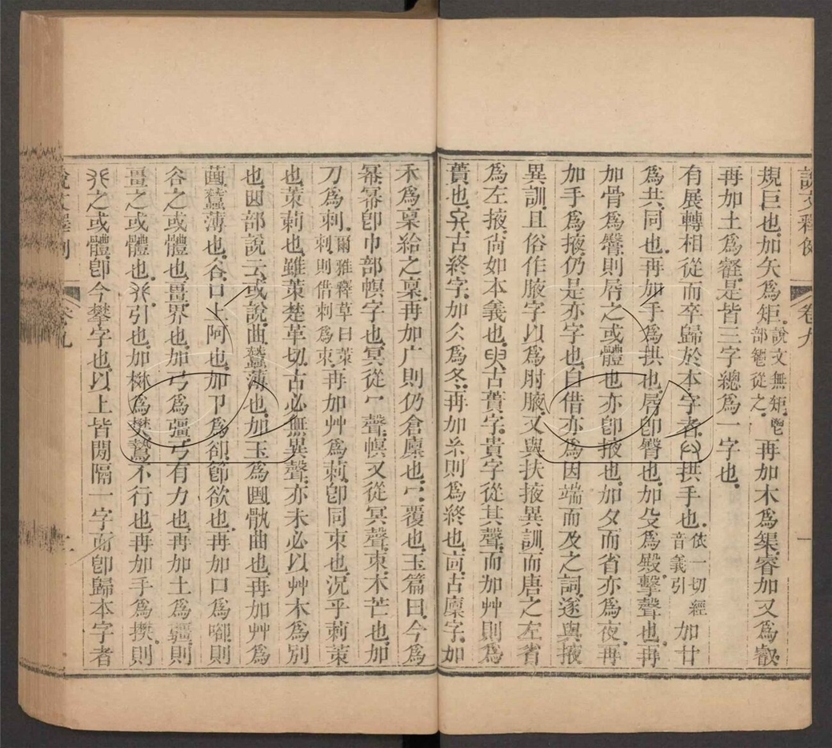 說文釋例 卷九 一
規巨也加矢為矩說文無矩巨部從之再加木為榘睿加又為叡
再加土為壑是皆三字總為一字也
有展轉相從而卒歸於本字者𠬞拱手也依一切經音義引加廿
為共同也再加手為拱也𡱂即臀也加殳為殿擊聲也再
加骨為臀則𡱂之或體也亦即掖也加夕而省亦為夜再
加手為掖仍是亦字也自借亦為因端而及之詞遂與掖
異訓且俗作腋字以為肘腋又與扶掖異訓而唐之左省
為左掖尚如本義也臾古蕢字貴字從其聲而加艸則為
蕢也古終字加仌為冬再加糸則為終也㐭古廩字加
禾為稟給之稟再加广則仍倉廩也冖覆也玉篇曰今為
冪冪即巾部幎字也冥從冖聲幎又從冥聲朿木芒也加
刀為刺爾雅釋草曰茦刺則借刺為朿再加艸為莿即同朿也況乎莿茦
也茦莿也雖茦楚革切古必無異聲亦未必以艸木為別
也部說云或說曲蠶薄也加玉為骫曲也再加艸為
蠶薄也谷口上阿也加卪為卻節欲也再加口為㗉則
谷之或體也畺界也加弓為彊弓有力也再加土為疆則
畺之或體也𠬜引也加棥為樊鷙不行也再加手為攀則
𠬜之或體即今攀字也以上皆閒隔一字而即歸本字者
說文釋例 卷九 二